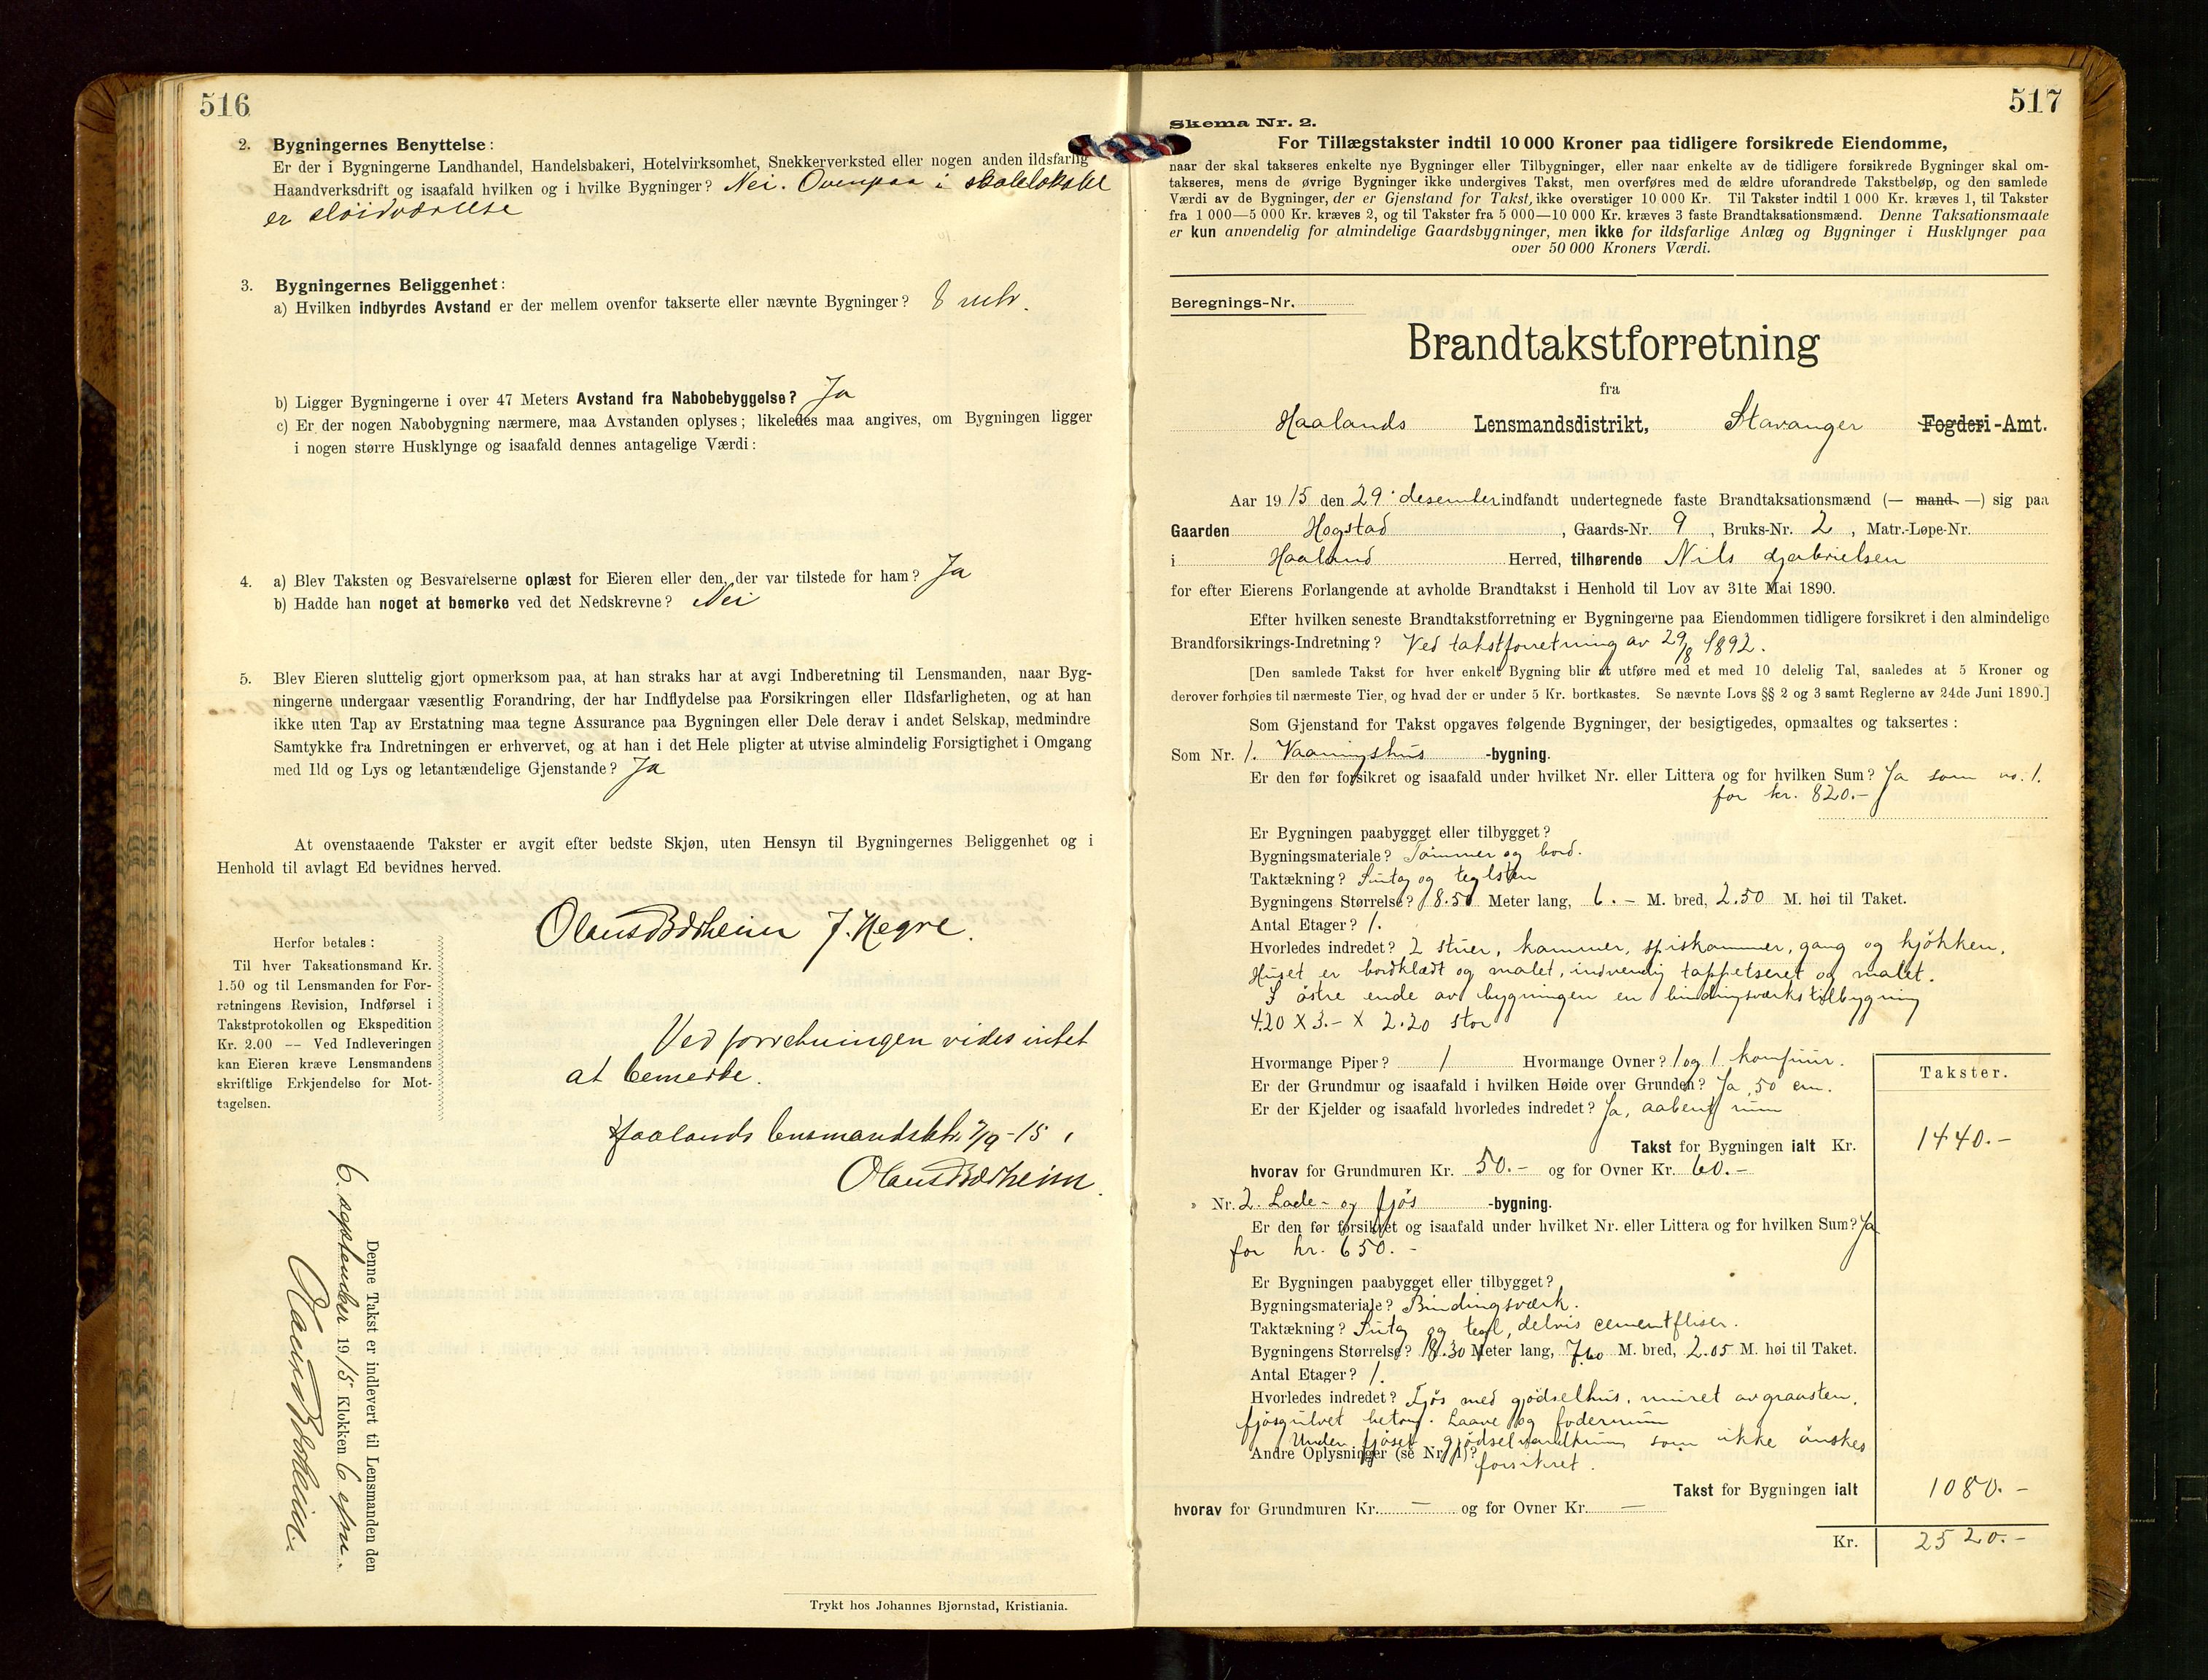 516
2. Bygningernes Benyttelse:
Er der i Bygningerne Landhandel, Handelsbakeri, Hotelvirksomhet, Snekkerverksted eller nogen anden ildsfarlig
Haandverksdrift og isaafald hvilken og i hvilke Bygninger? Nei. Ovenpaa i skolelokalet
er sløidværelse
3. Bygningernes Beliggenhet:
a) Hvilken indbyrdes Avstand er der mellem ovenfor takserte eller nævnte Bygninger? 8 mtr.
b) Ligger Bygningerne i over 47 Meters Avstand fra Nabobebyggelse? Ja
c) Er der nogen Nabobygning nærmere, maa Avstanden oplyses; likeledes maa angives, om Bygningen ligger
i nogen større Husklynge og isaafald dennes antagelige Værdi:
4. a) Blev Taksten og Besvarelserne oplæst for Eieren eller den, der var tilstede for ham? Ja
b) Hadde han noget at bemerke ved det Nedskrevne? Nei
5. Blev Eieren sluttelig gjort opmerksom paa, at han straks har at avgi Indberetning til Lensmanden, naar Byg-
ningerne undergaar væsentlig Forandring, der har Indflydelse paa Forsikringen eller Ildsfarligheten, og at han
ikke uten Tap av Erstatning maa tegne Assurance paa Bygningen eller Dele derav i andet Selskap, medmindre
Samtykke fra Indretningen er erhvervet, og at han i det Hele pligter at utvise almindelig Forsigtighet i Omgang
med Ild og Lys og letantændelige Gjenstande? Ja
At ovenstaaende Takster er avgit efter bedste Skjøn, uten Hensyn til Bygningernes Beliggenhet og i
Henhold til avlagt Ed bevidnes herved.
Olaus Bærheim J. Hegre.
Herfor betales:
Til hver Taksationsmand Kr.
1.50 og til Lensmanden for For-
retningens Revision, Indførsel i
Takstprotokollen og Ekspedition
Kr. 2.00 -- Ved Indleveringen
kan Eieren kræve Lensmandens
skriftlige Erkjendelse for Mot-
tagelsen.
Ved forretningen vides intet
at bemerke.
Haalands lensmandsktr. 7/9-15,
Olaus Bærheim.
Denne Takst er indlevert til Lensmanden den
6. september 1915 Klokken 6 efm.
Olaus Bærheim.
Trykt hos Johannes Bjørnstad, Kristiania.
517
Skema Nr. 2.
For Tillægstakster indtil 10 000 Kroner paa tidligere forsikrede Eiendomme,
naar der skal takseres enkelte nye Bygninger eller Tilbygninger, eller naar enkelte av de tidligere forsikrede Bygninger skal om-
takseres, mens de øvrige Bygninger ikke undergives Takst, men overføres med de ældre uforandrede Takstbeløp, og den samlede
Værdi av de Bygninger, der er Gjenstand for Takst, ikke overstiger 10 000 Kr. Til Takster indtil 1 000 Kr. kræves 1, til Takster
fra 1 000—5 000 Kr. kræves 2, og til Takster fra 5 000—10 000 Kr. kræves 3 faste Brandtaksationsmænd. Denne Taksationsmaate
er kun anvendelig for almindelige Gaardsbygninger, men ikke for ildsfarlige Anlæg og Bygninger i Husklynger paa
over 50 000 Kroners Værdi.
Beregnings-Nr.
Brandtakstforretning
fra
Haalands Lensmandsdistrikt, Stavanger Fogderi-Amt.
Aar 1915 den 29. desember indfandt undertegnede faste Brandtaksationsmænd (— mand —) sig paa
Gaarden Hogstad, Gaards-Nr. 9, Bruks-Nr. 2, Matr.-Løpe-Nr.
i Haaland Herred, tilhørende Nils Gabrielsen
for efter Eierens Forlangende at avholde Brandtakst i Henhold til Lov av 31te Mai 1890.
Efter hvilken seneste Brandtakstforretning er Bygningerne paa Eiendommen tidligere forsikret i den almindelige
Brandforsikrings-Indretning? Ved takstforretning av 29/8 1892.
[Den samlede Takst for hver enkelt Bygning blir at utføre med et med 10 delelig Tal, saaledes at 5 Kroner og
derover forhøies til nærmeste Tier, og hvad der er under 5 Kr. bortkastes. Se nævnte Lovs §§ 2 og 3 samt Reglerne av 24de Juni 1890.]
Som Gjenstand for Takst opgaves følgende Bygninger, der besigtigedes, opmaaltes og taksertes:
Som Nr. 1. Vaaningshus -bygning.
Er den før forsikret og isaafald under hvilket Nr. eller Littera og for hvilken Sum? Ja som no. 1.
for kr. 820.-
Er Bygningen paabygget eller tilbygget?
Bygningsmateriale? Tømmer og bord.
Taktækning? Sutag og teglsten
Bygningens Størrelse? 8.50 Meter lang, 6.- M. bred, 2.50 M. høi til Taket.
Antal Etager? 1.
Hvorledes indredet? 2 stuer, kammer, spiskammer, gang og kjøkken.
Huset er bordklædt og malet, indvendig tappetseret og malet.
I østre ende av bygningen en bindingsværkstilbygning
4.20 X 3.- X 2.20 stor
Hvormange Piper? 1 Hvormange Ovner? 1 og 1 komfuir.
Er der Grundmur og isaafald i hvilken Høide over Grunden? Ja, 50 cm.
Er der Kjelder og isaafald hvorledes indredet? Ja, aabent rum
Takster.
Takst for Bygningen ialt Kr. 1440.-
hvorav for Grundmuren Kr. 50.- og for Ovner Kr. 60.-
» Nr. 2. Lade- og fjøs -bygning.
Er den før forsikret og isaafald under hvilket Nr. eller Littera og for hvilken Sum? Ja
for kr. 650.-
Er Bygningen paabygget eller tilbygget?
Bygningsmateriale? Bindingsværk.
Taktækning? Sutag og tegl, delvis cementfliser.
Bygningens Størrelse? 18.30 Meter lang, 7.60 M. bred, 2.05 M. høi til Taket.
Antal Etager? 1.
Hvorledes indredet? Fjøs med gjødselhus, muret av graasten,
fjøsgulvet betong. Laave og foderrum
Under fjøset gjødselvandkum som ikke ønskes
Andre Oplysninger (se Nr. 1)? forsikret.
Takst for Bygningen ialt 1080.-
hvorav for Grundmuren Kr. — og for Ovner Kr. —
Kr. 2520.-